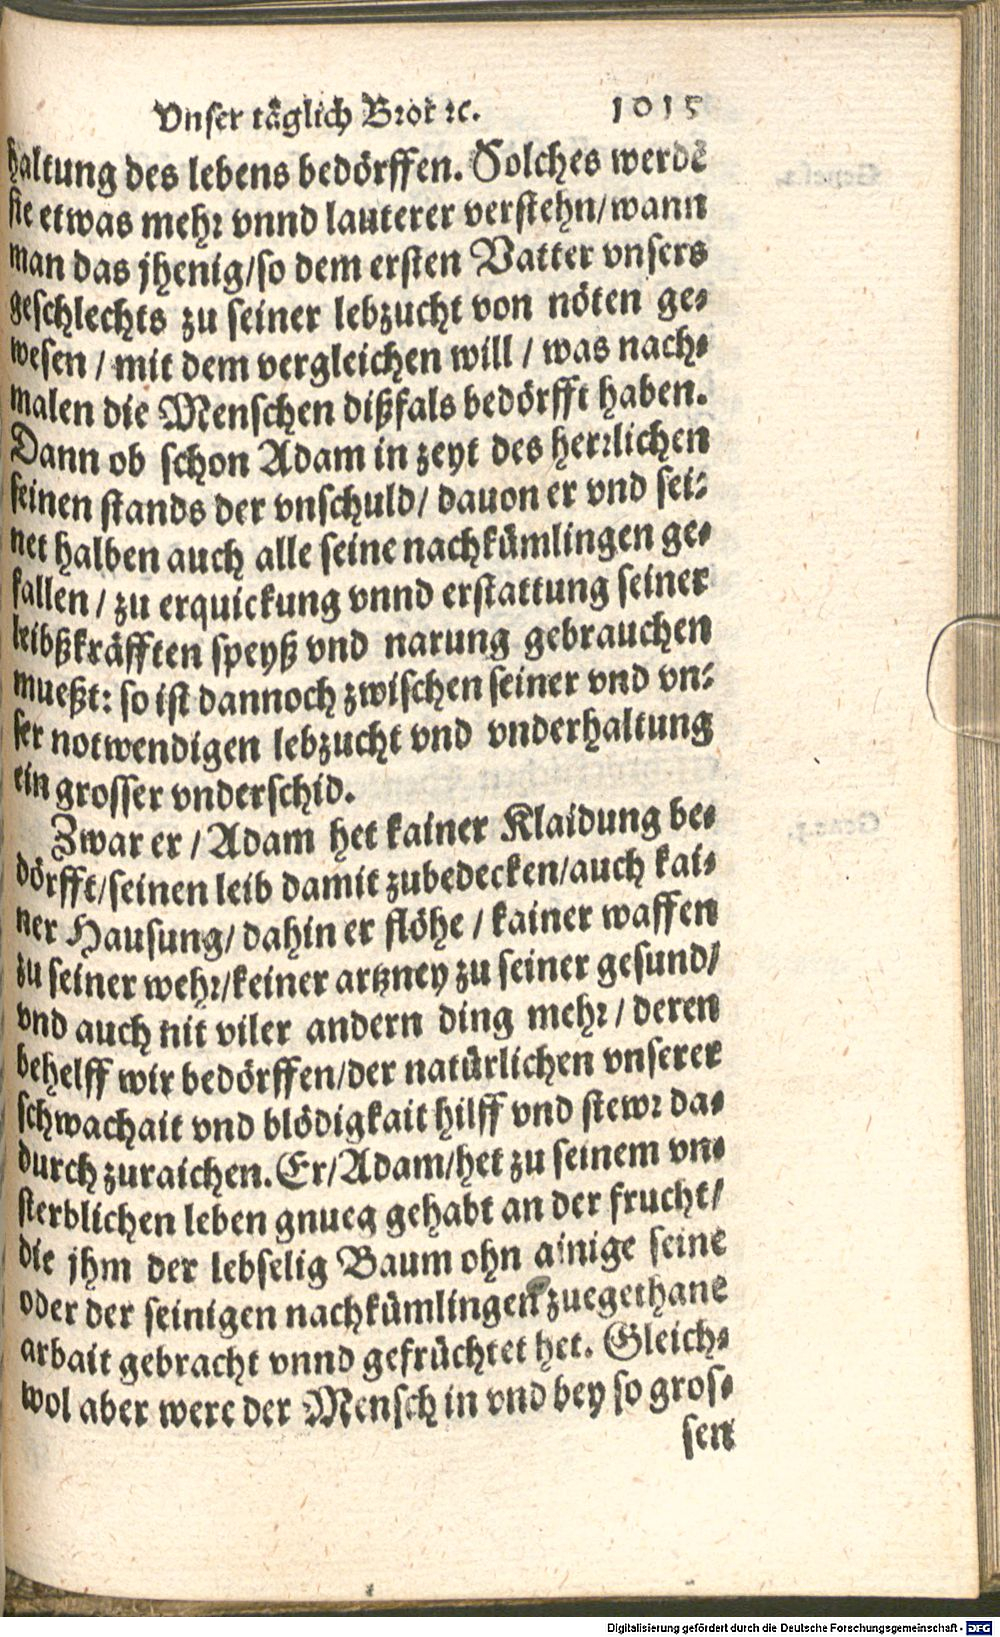 Vnser täglich Brot ꝛc. 1015
haltung des lebens bedörffen. Solches werdē
sie etwas mehr vnnd lauterer verstehn/wann
man das jhenig/so dem ersten Vatter vnsers
geschlechts zu seiner lebzucht von nöten ge-
wesen / mit dem vergleichen will / was nach-
malen die Menschen dißfals bedörfft haben.
Dann ob schon Adam in zeyt des herrlichen
seinen stands der vnschuld/ dauon er vnd sei-
net halben auch alle seine nachkümlingen ge-
fallen / zu erquickung vnnd erstattung seiner
leibßkräfften speyß vnd narung gebrauchen
mueßt: so ist dannoch zwischen seiner vnd vn-
ser notwendigen lebzucht vnd vnderhaltung
ein grosser vnderschid.
Zwar er / Adam het kainer Klaidung be-
dörfft/seinen leib damit zubedecken/auch kai-
ner Hausung/ dahin er flöhe / kainer waffen
zu seiner wehr/keiner artzney zu seiner gesund/
vnd auch nit viler andern ding mehr / deren
behelff wir bedörffen/der natürlichen vnserer
schwachait vnd blödigkait hilff vnd stewr da-
durch zuraichen. Er/Adam/het zu seinem vn-
sterblichen leben gnueg gehabt an der frucht/
die jhm der lebselig Baum ohn ainige seine
oder der seinigen nachkümlingen zuegethane
arbait gebracht vnnd gefrüchtet het. Gleich-
wol aber were der Mensch in vnd bey so gros-
sen
Digitalisierung gefördert durch die Deutsche Forschungsgemeinschaft - DFG